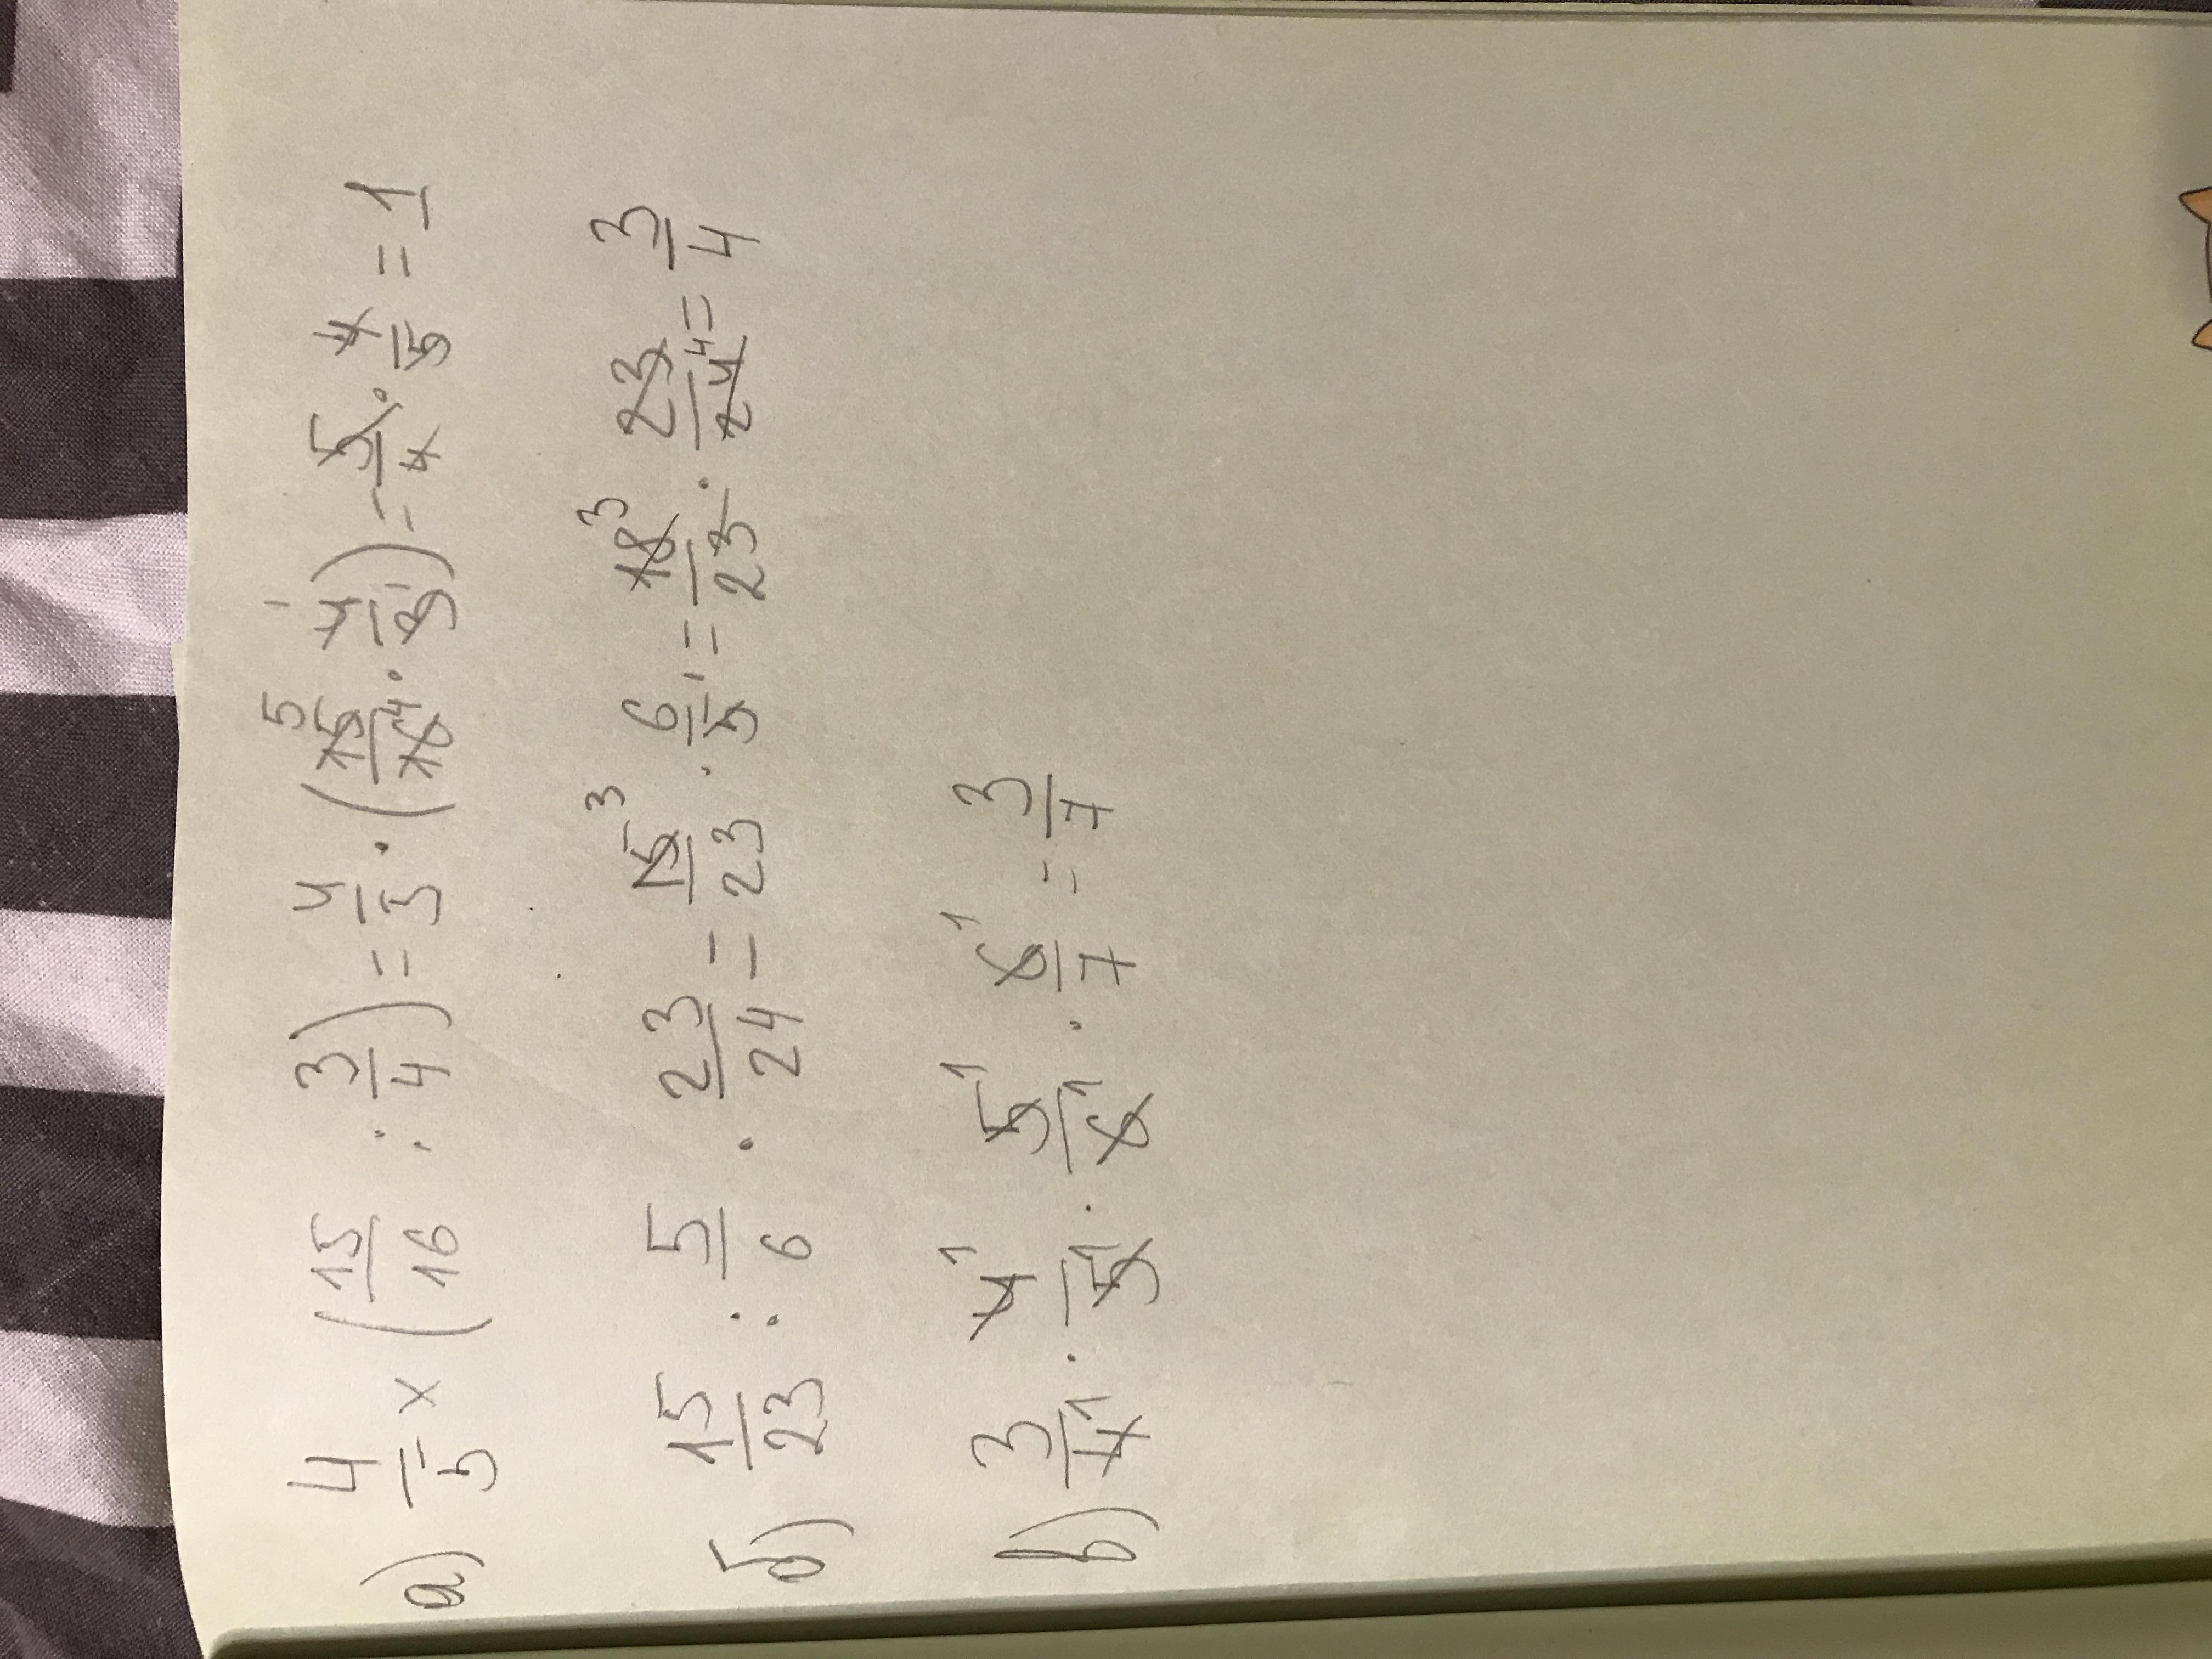 а) 4/5 × (15/16 : 3/4) = 4/5 · (15/16 · 4/3) = 5/4 · 4/5 = 1
б) 15/23 : 5/6 · 23/24 = 15/23 · 6/5 = 18/23 · 23/24 = 3/4
в) 3/4 · 4/5 · 5/6 · 6/7 = 3/7